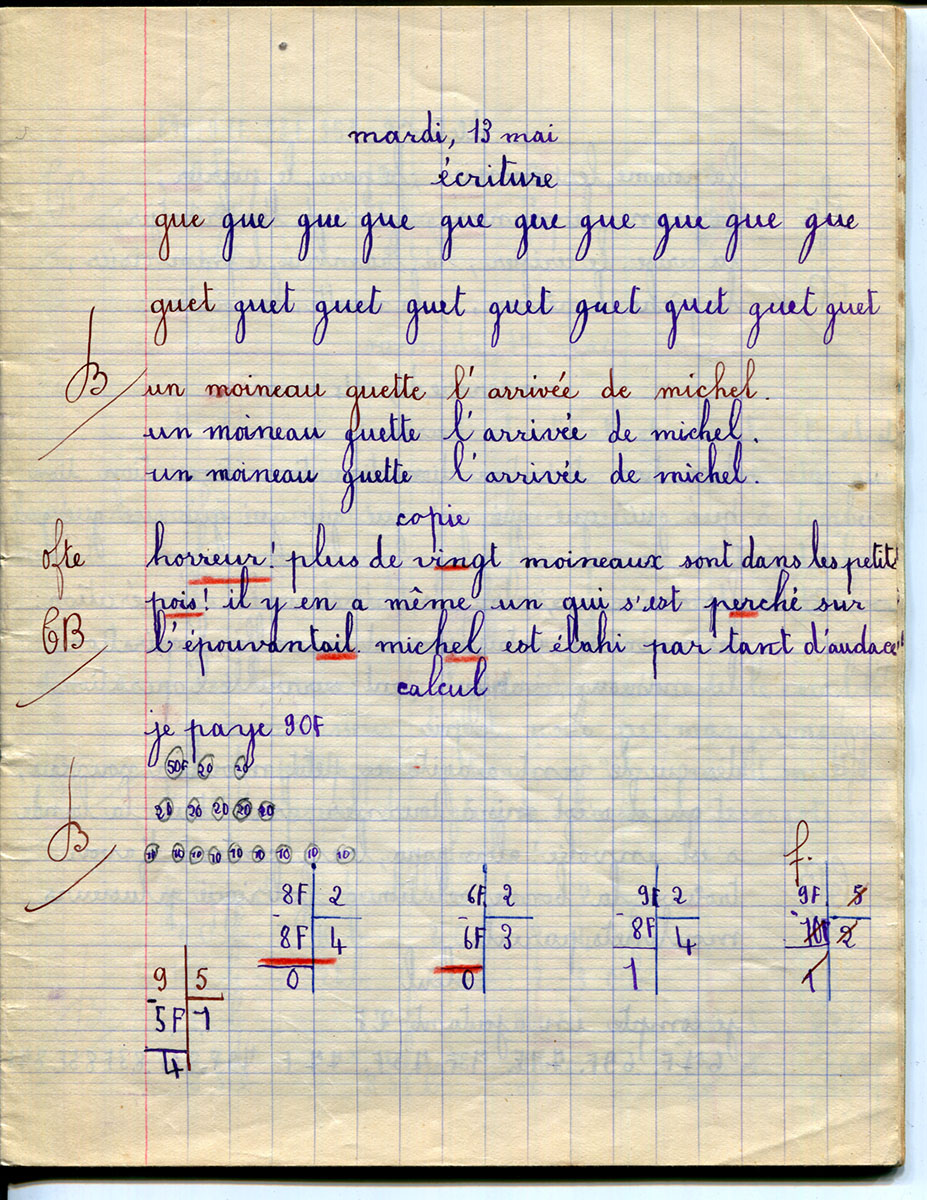 mardi, 13 mai
écriture
gue gue gue gue gue gue gue gue gue gue
guet guet guet guet guet guet guet guet guet
B
un moineau guette l'arrivée de michel.
un moineau guette l'arrivée de michel.
un moineau guette l'arrivée de michel.
copie
horreur! plus de vingt moineaux sont dans les petits
pois! il y en a même un qui s'est perché sur
TB
l'épouvantail. michel est ébahi par tant d'audace!
calcul
je paye 90F
50F 20 20
20 20 20 20 20
B
10 10 10 10 10 10 10 10 10
f.
8F 2 6F 2 9F 2 9F 5
-8F 4 -6F 3 -8F 4 -10F 2
0 0 1 1
9 5
-5F 1
4